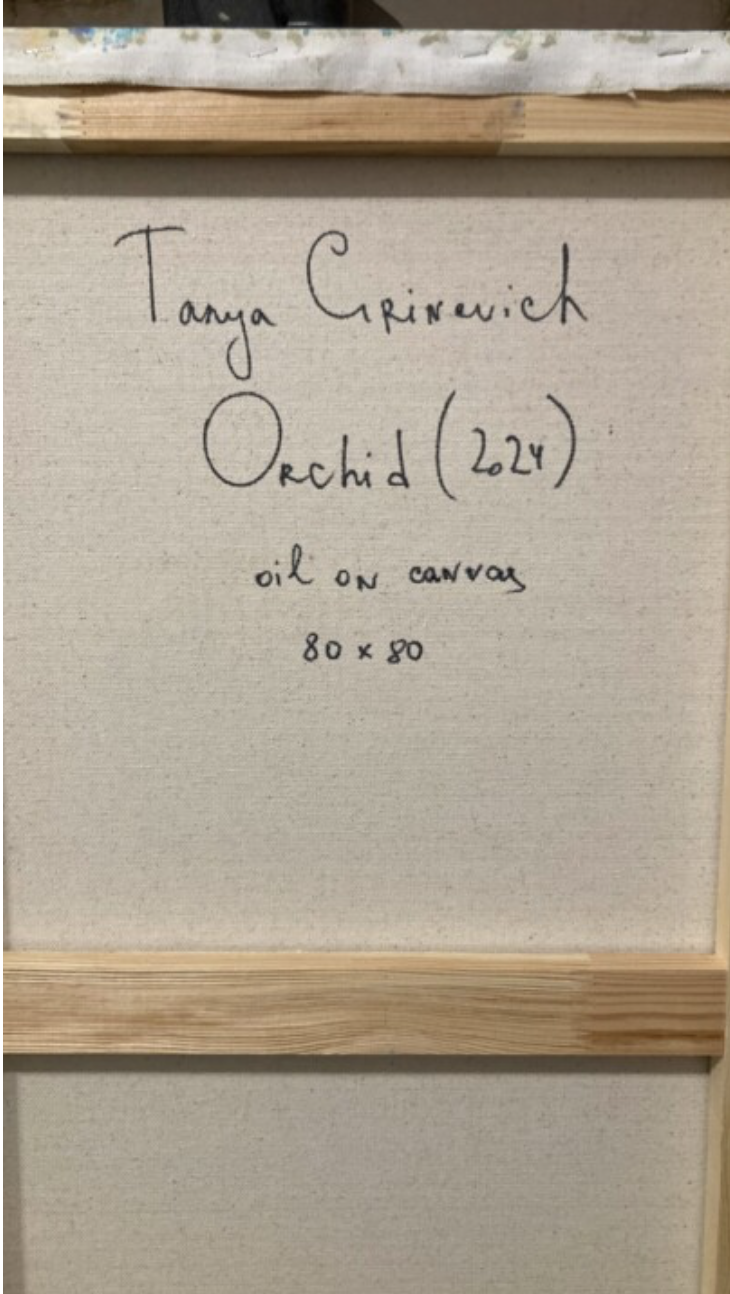 Tanya Grinevich
Orchid (2024)
oil on canvas
80 x 80